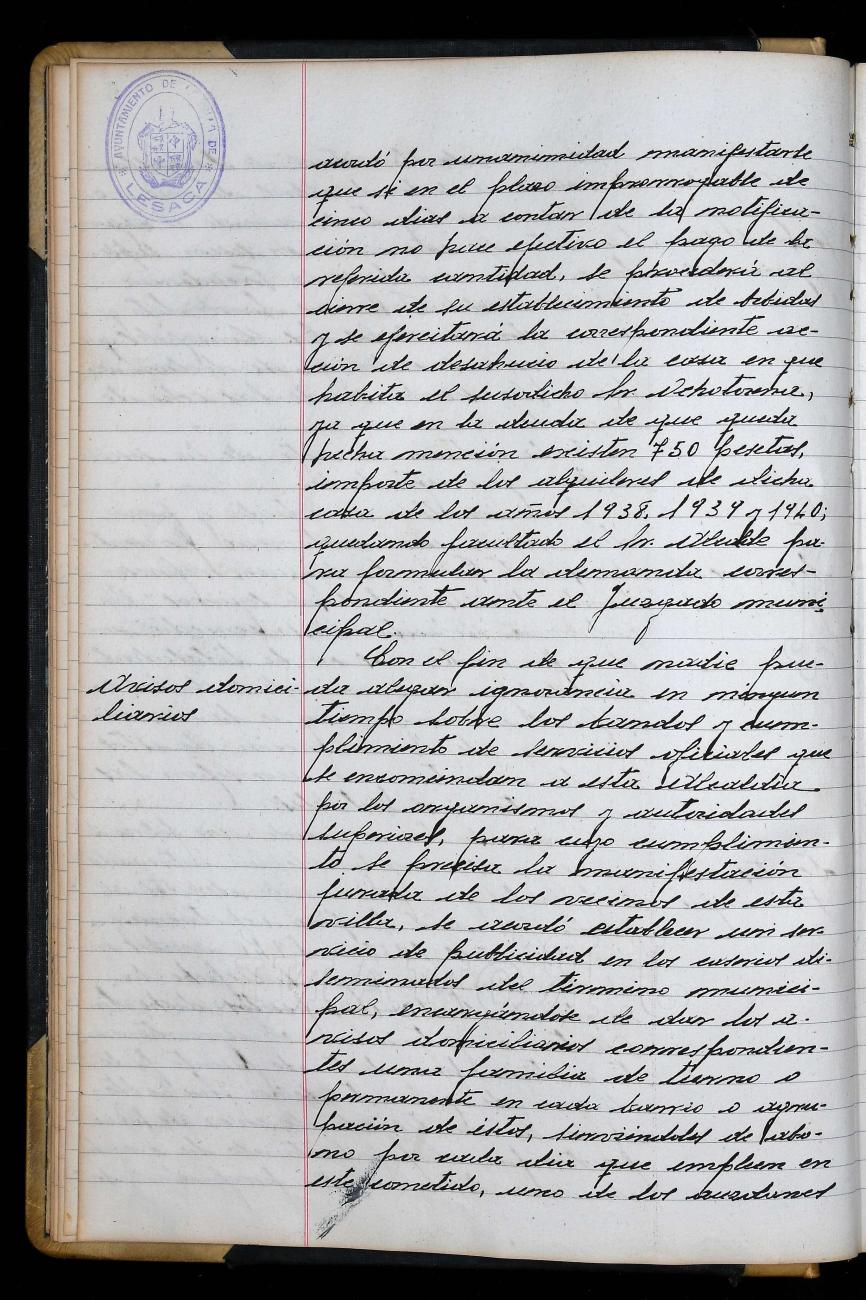 AYUNTAMIENTO DE
LESACA
acordó por unanimidad manifestarle
que si en el plazo improrrogable de
cinco dias a contar de la notifica-
ción no hace efectivo el pago de la
referida cantidad, se procederá al
cierre de su establecimiento de bebidas
y se ejercitará la correspondiente ac-
ción de desahucio de la casa en que
habita el susodicho Sr. Ochotorena,
ya que en la deuda de que queda
hecha mención existen 750 pesetas,
importe de los alquileres de dicha
casa de los años 1938, 1939 y 1940;
quedando facultado el Sr. Alcalde pa-
ra formular la demanda corres-
pondiente ante el Juzgado muni-
cipal.
Avisos domici-
liarios
Con el fin de que nadie pue-
da alegar ignorancia en ningun
tiempo sobre los bandos y cum-
plimiento de servicios oficiales que
se encomiendan a esta Alcaldia
por los organismos y autoridades
superiores, para cuyo cumplimien-
to se precisa la manifestación
jurada de los vecinos de esta
villa, se acordó establecer un ser-
vicio de publicidad en los caserios di-
seminados del término munici-
pal, encargándose de dar los a-
visos domiciliarios correspondien-
tes una familia de turno o
permanente en cada barrio o agru-
pación de éstos, sirviéndoles de abo-
no por cada dia que empleen en
este cometido, uno de los auzolanes